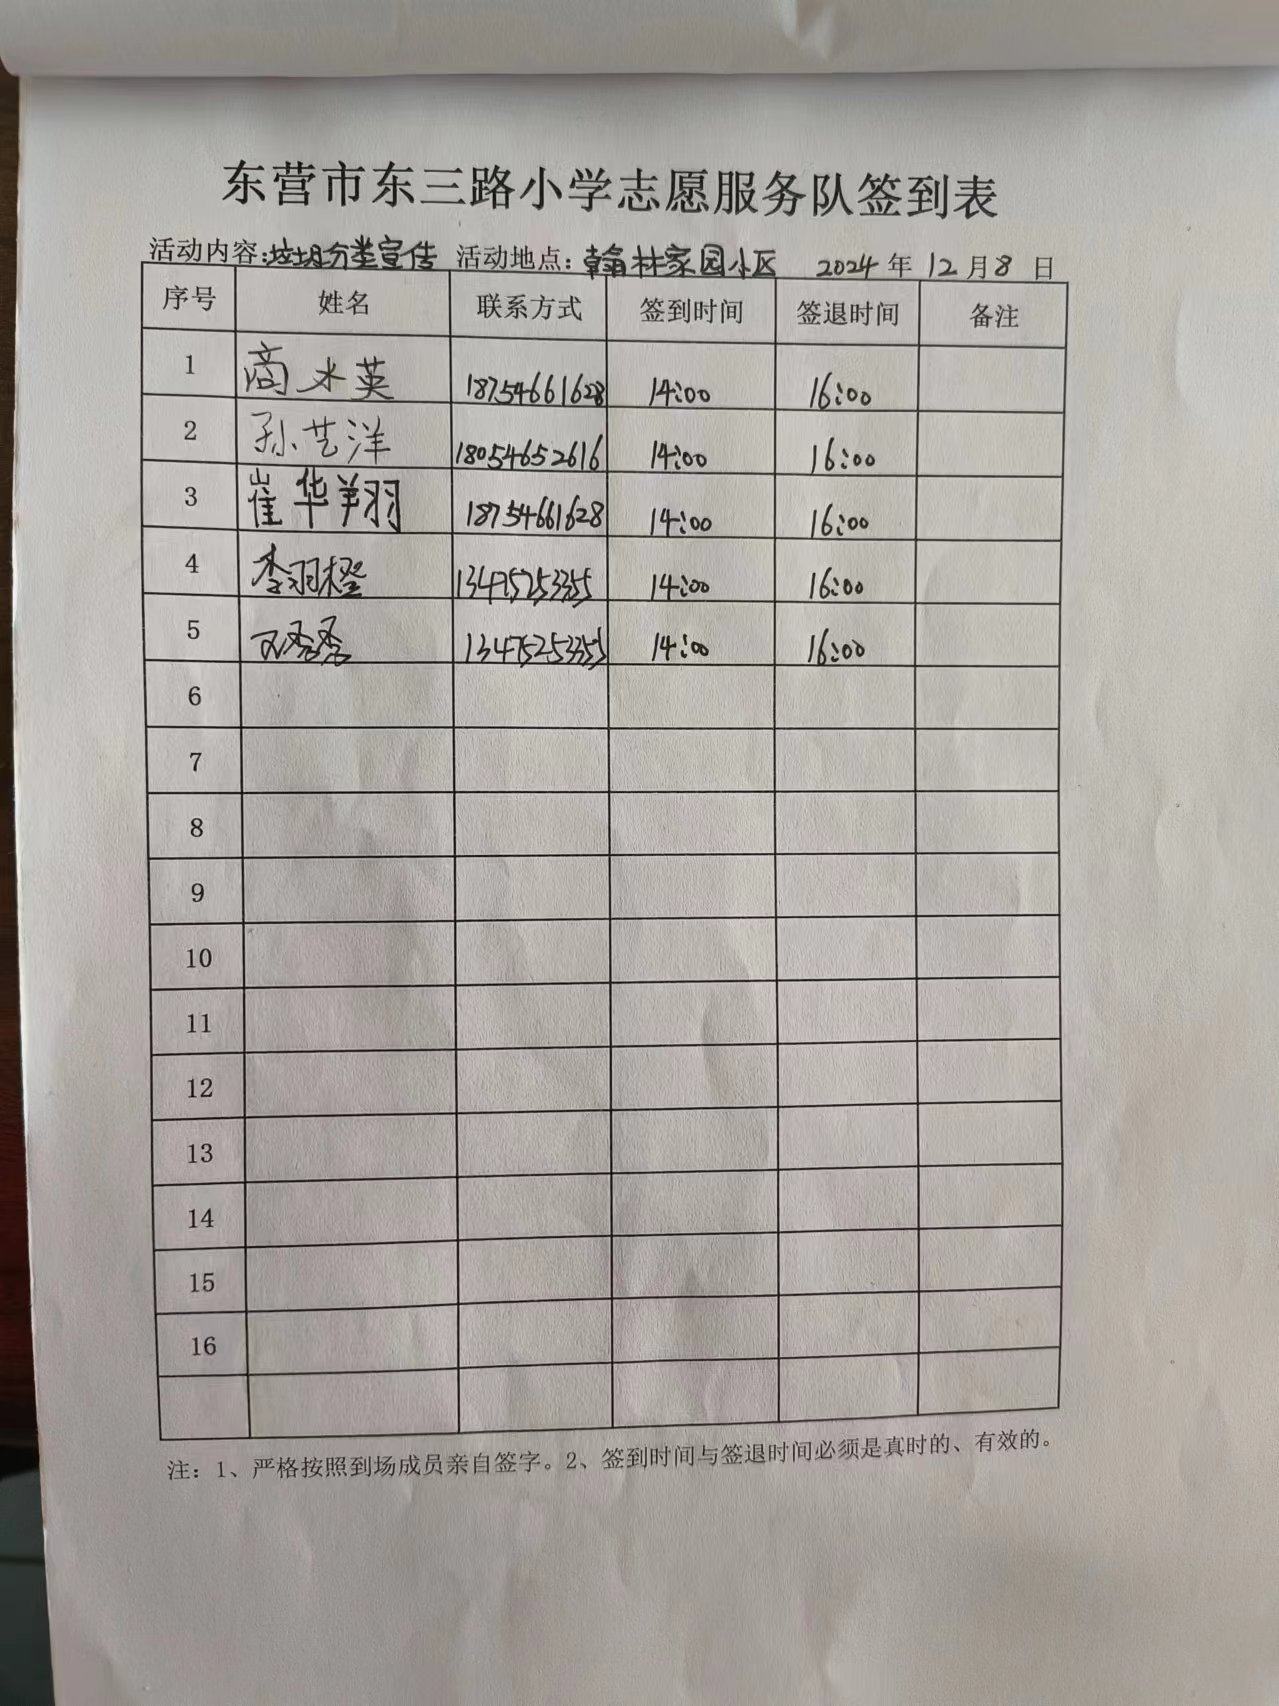 东营市东三路小学志愿服务队签到表
活动内容:垃圾分类宣传 活动地点:翰林家园小区 2024年12月8日
序号 姓名 联系方式 签到时间 签退时间 备注
1 商水英 18754661628 14:00 16:00
2 孙艺洋 18054652616 14:00 16:00
3 崔华翔 18754661628 14:00 16:00
4 李羽橙 13475253355 14:00 16:00
5 13475253355 14:00 16:00
6
7
8
9
10
11
12
13
14
15
16
注：1、严格按照到场成员亲自签字。2、签到时间与签退时间必须是真时的、有效的。